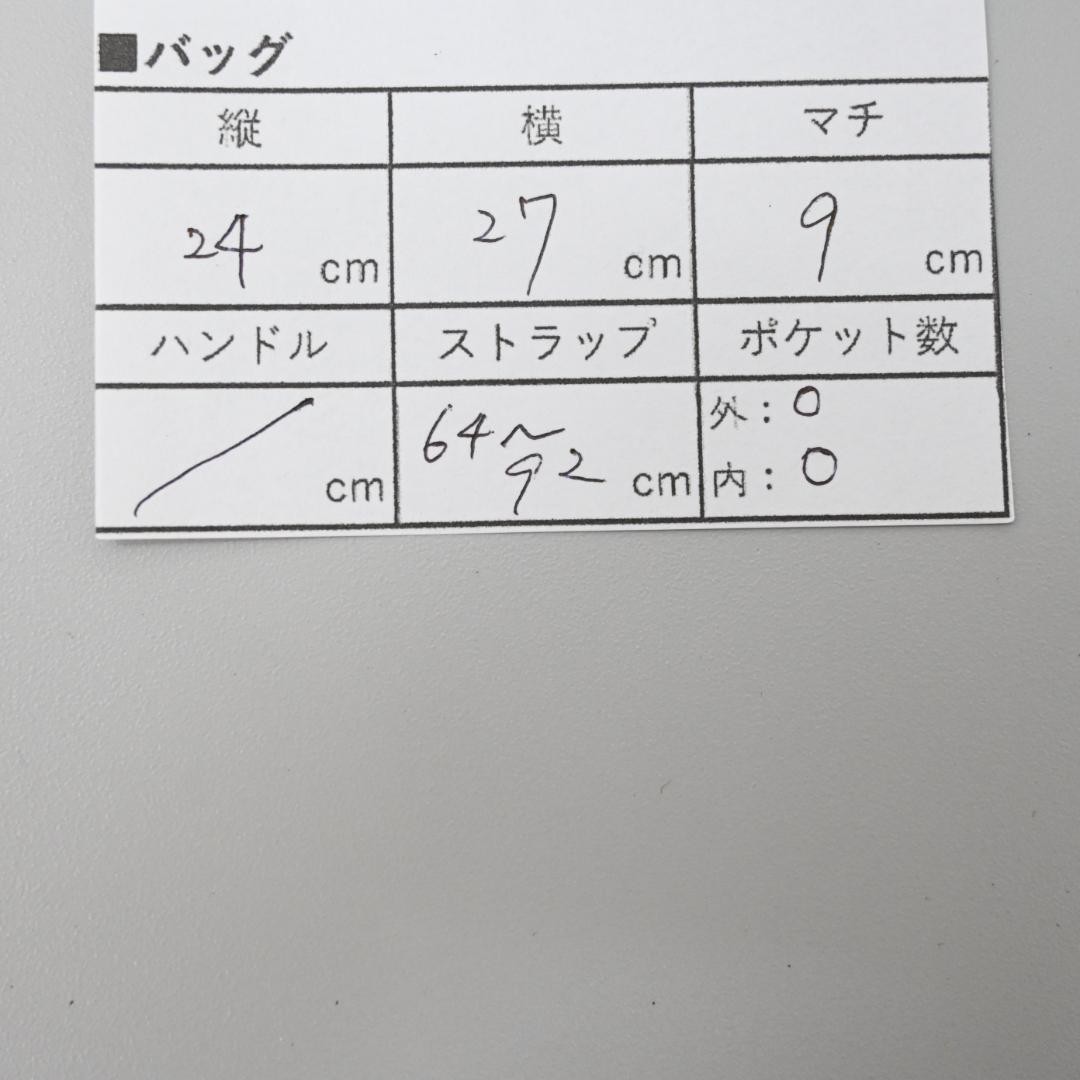 ■バッグ
縦 横 マチ
24 cm 27 cm 9 cm
ハンドル ストラップ ポケット数
/ cm 64~92 cm 外:0
内:0